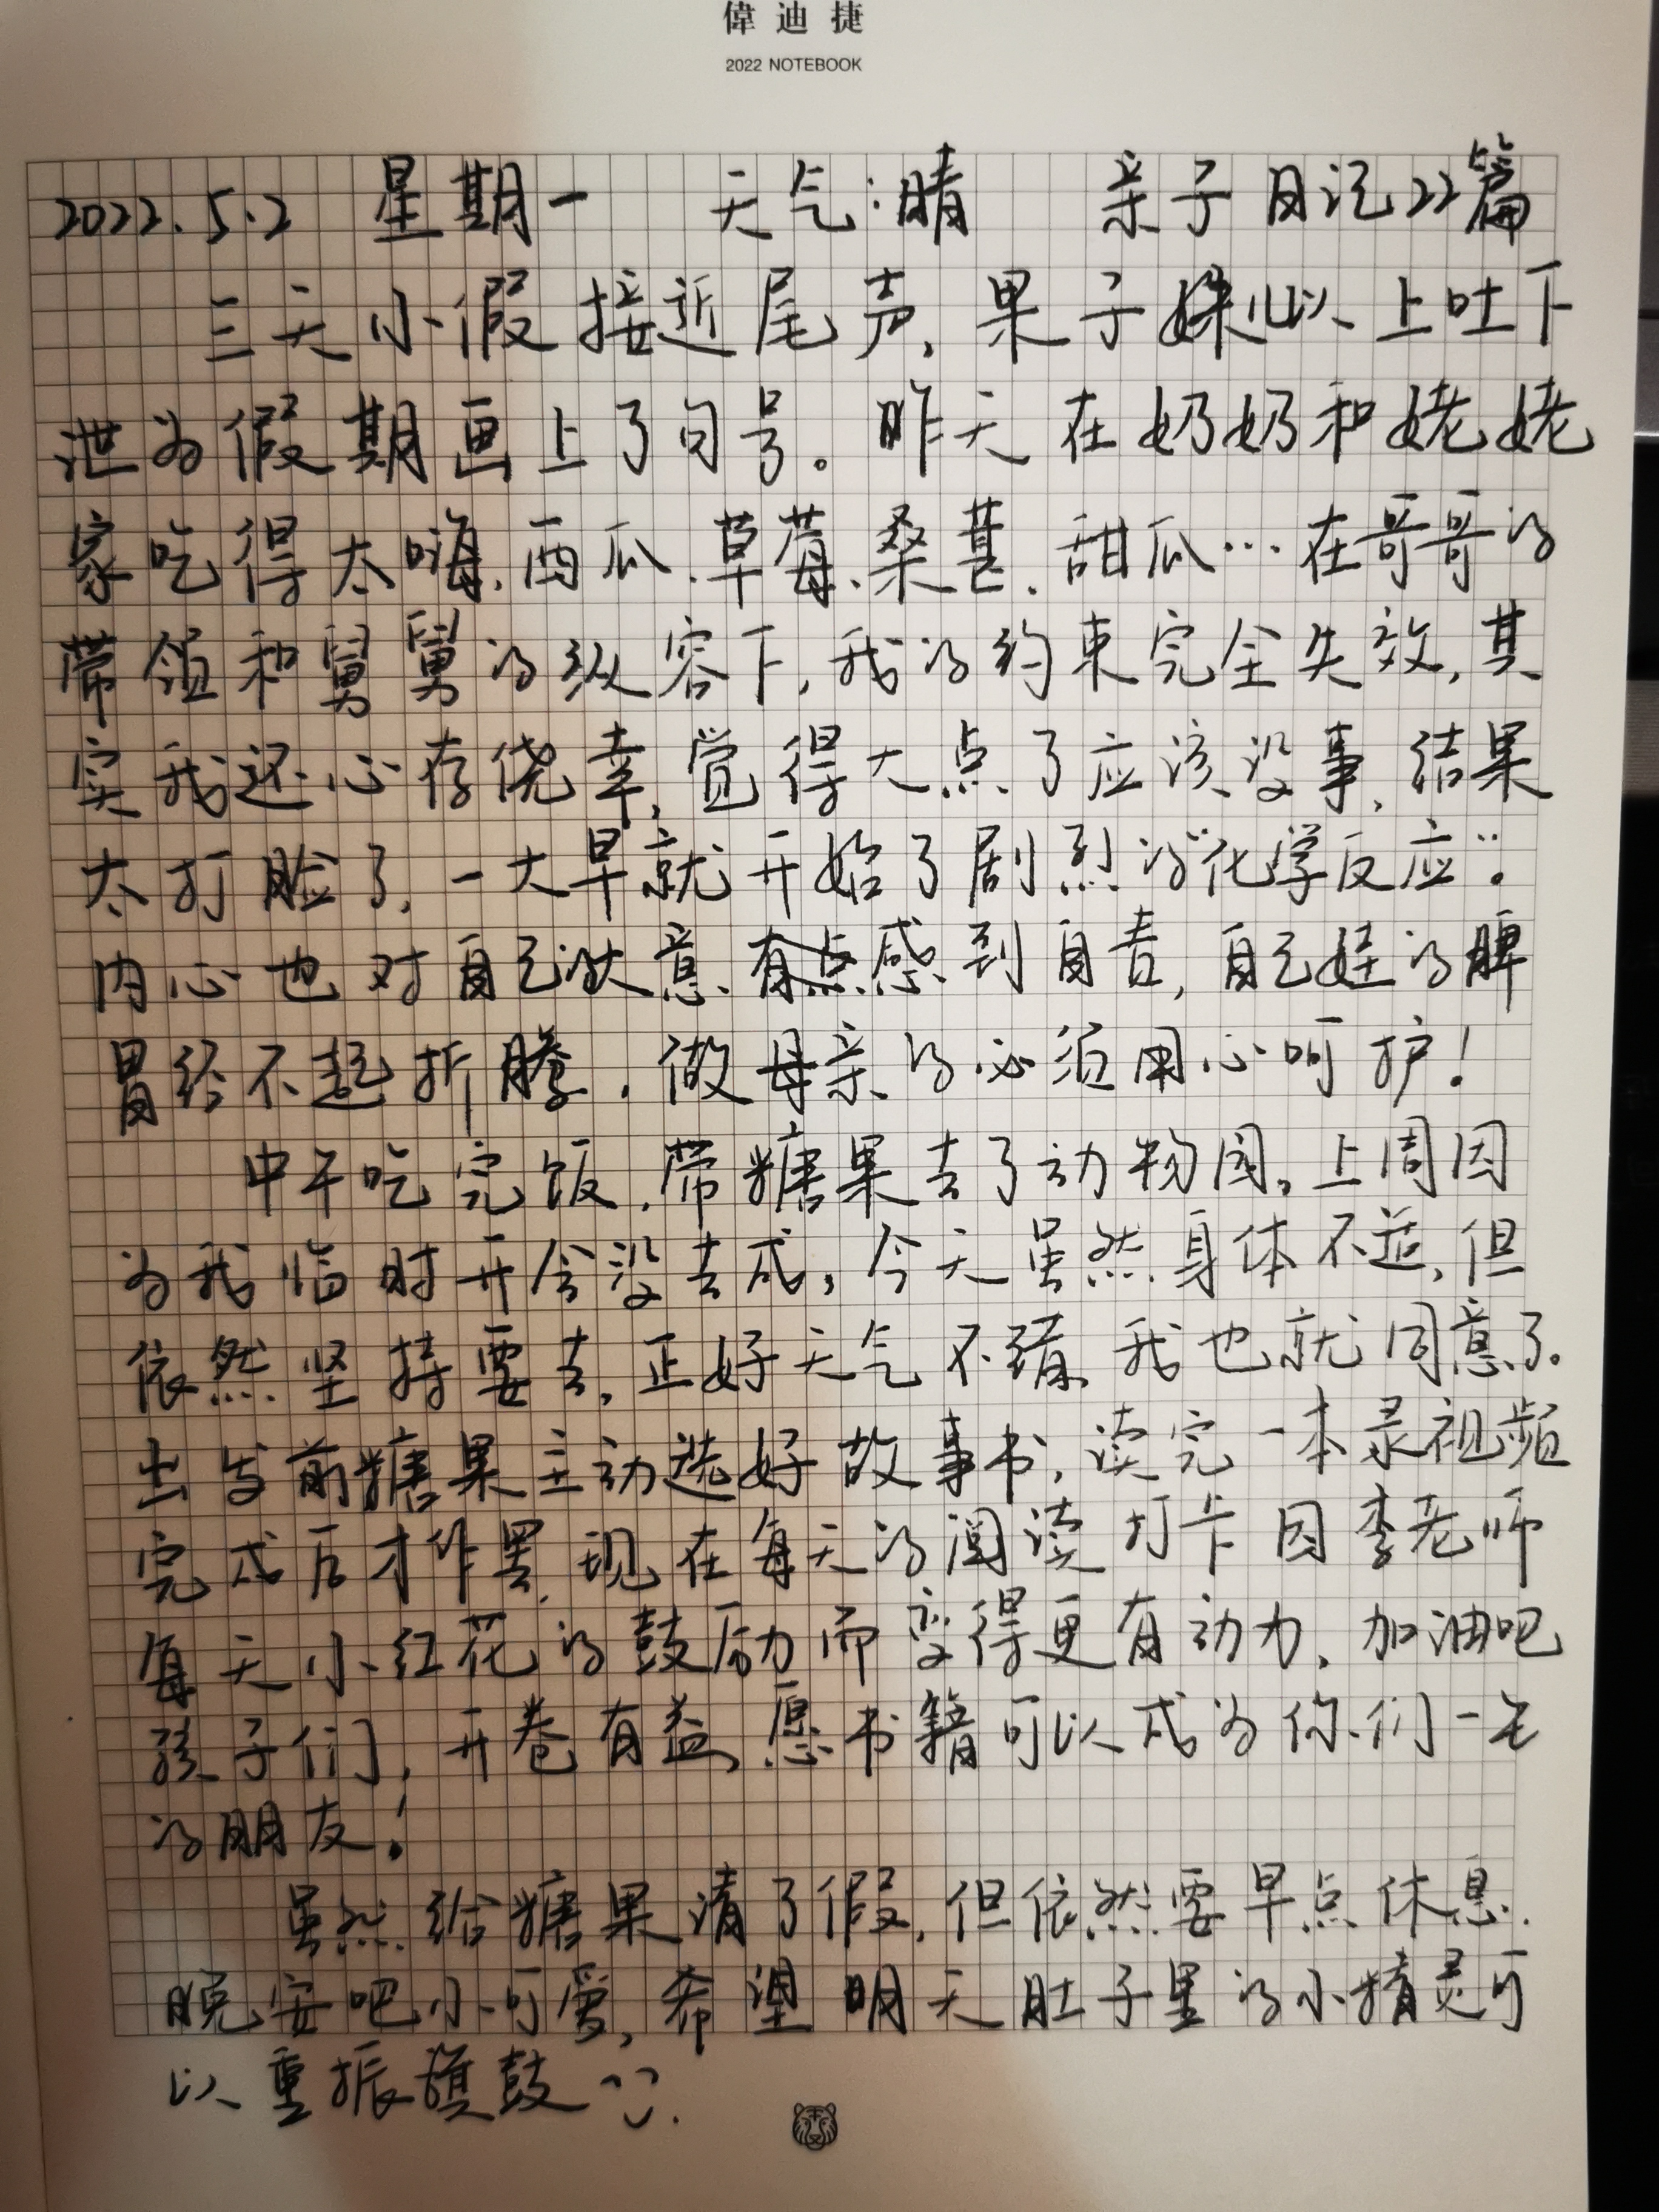 偉迪捷
2022 NOTEBOOK
2022.5.2 星期一 天气:晴 亲子日记22篇
三天小假接近尾声,果子妹儿以上吐下
泄为假期画上了句号。昨天在奶奶和姥姥
家吃得太嗨,西瓜、草莓、桑葚、甜瓜…在哥哥的
带领和舅舅的纵容下,我的约束完全失效,其
实我还心存侥幸,觉得大点了应该没事,结果
太打脸了,一大早就开始了剧烈的“化学反应”。
内心也对自己的大意有点感到自责,自己娃的脾
胃经不起折腾,做母亲的必须用心呵护!
中午吃完饭,带糖果去了动物园,上周因
为我临时开会没去成,今天虽然身体不适,但
依然坚持要去,正好天气不错,我也就同意了。
出发前糖果主动选好故事书,读完一本录视频
完成后才作罢,现在每天的阅读打卡因李老师
每天小红花的鼓励而变得更有动力,加油吧
孩子们,开卷有益,愿书籍可以成为你们一生
的朋友!
虽然给糖果请了假,但依然要早点休息,
晚安吧小可爱,希望明天肚子里的小精灵可
以重振旗鼓